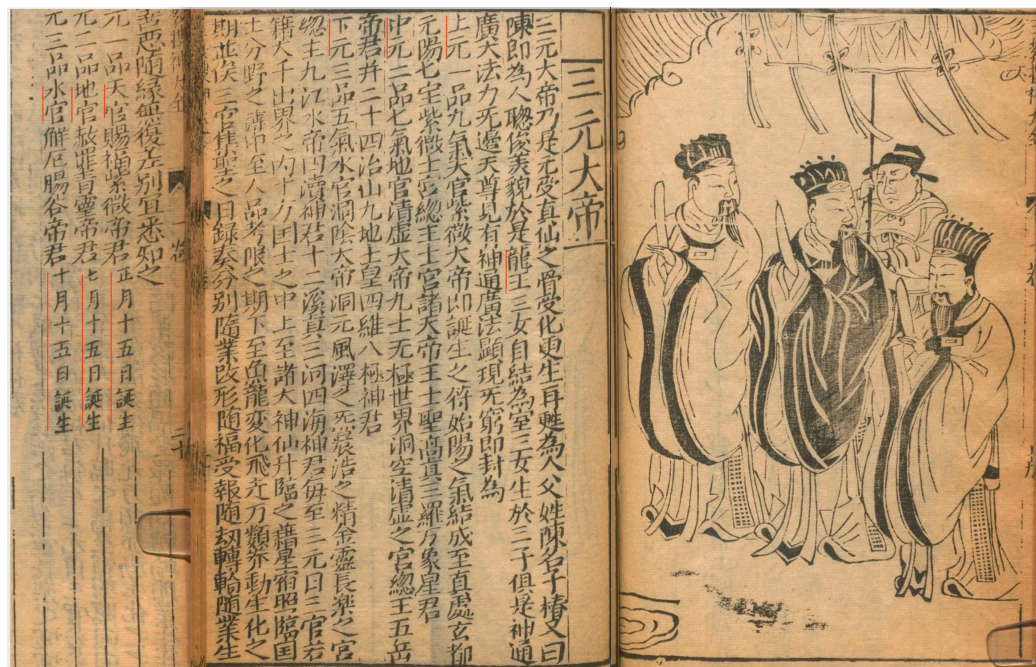 三元大帝
三元大帝乃是元受真仙之骨受化更生再甦為人父姓陳名子椿又曰
陳即為人聦俊美貌於是龍王三女自結為室三女生於三子俱是神通
廣大法力旡邊天尊見有神通廣法顯現旡窮即封為
上元一品九氣天官紫微大帝即誕生之符始陽之氣結成至真處玄都
元陽七宝紫微上宮總主上宮諸天帝王士聖高真三羅万象星君
中元二品七氣地官清虛大帝九土无極世界洞空清虛之宮總主五岳
帝君并二十四治山九地土皇四維八極神君
下元三品五氣水官洞陰大帝洞元風澤之炁晨浩之精金靈長樂之宮
總主九江水帝四瀆神君十二溪真三河四海神君每至三元日三官考
籍大千世界之内十方囯土之中上至諸天神仙升臨之籍星宿照臨囯
土分野之簿中至人品考限之期下至魚龍變化飛走万類养動生化之
期並俟三官集聖之日録奏分別隨業改形隨福受報隨刼轉輪隨業生
善惡隨緣無復差別宜悉知之
元一品天官賜福紫微帝君 正月十五日誕生
元二品地官赦罪青靈帝君 七月十五日誕生
元三品水官解厄暘谷帝君 十月十五日誕生